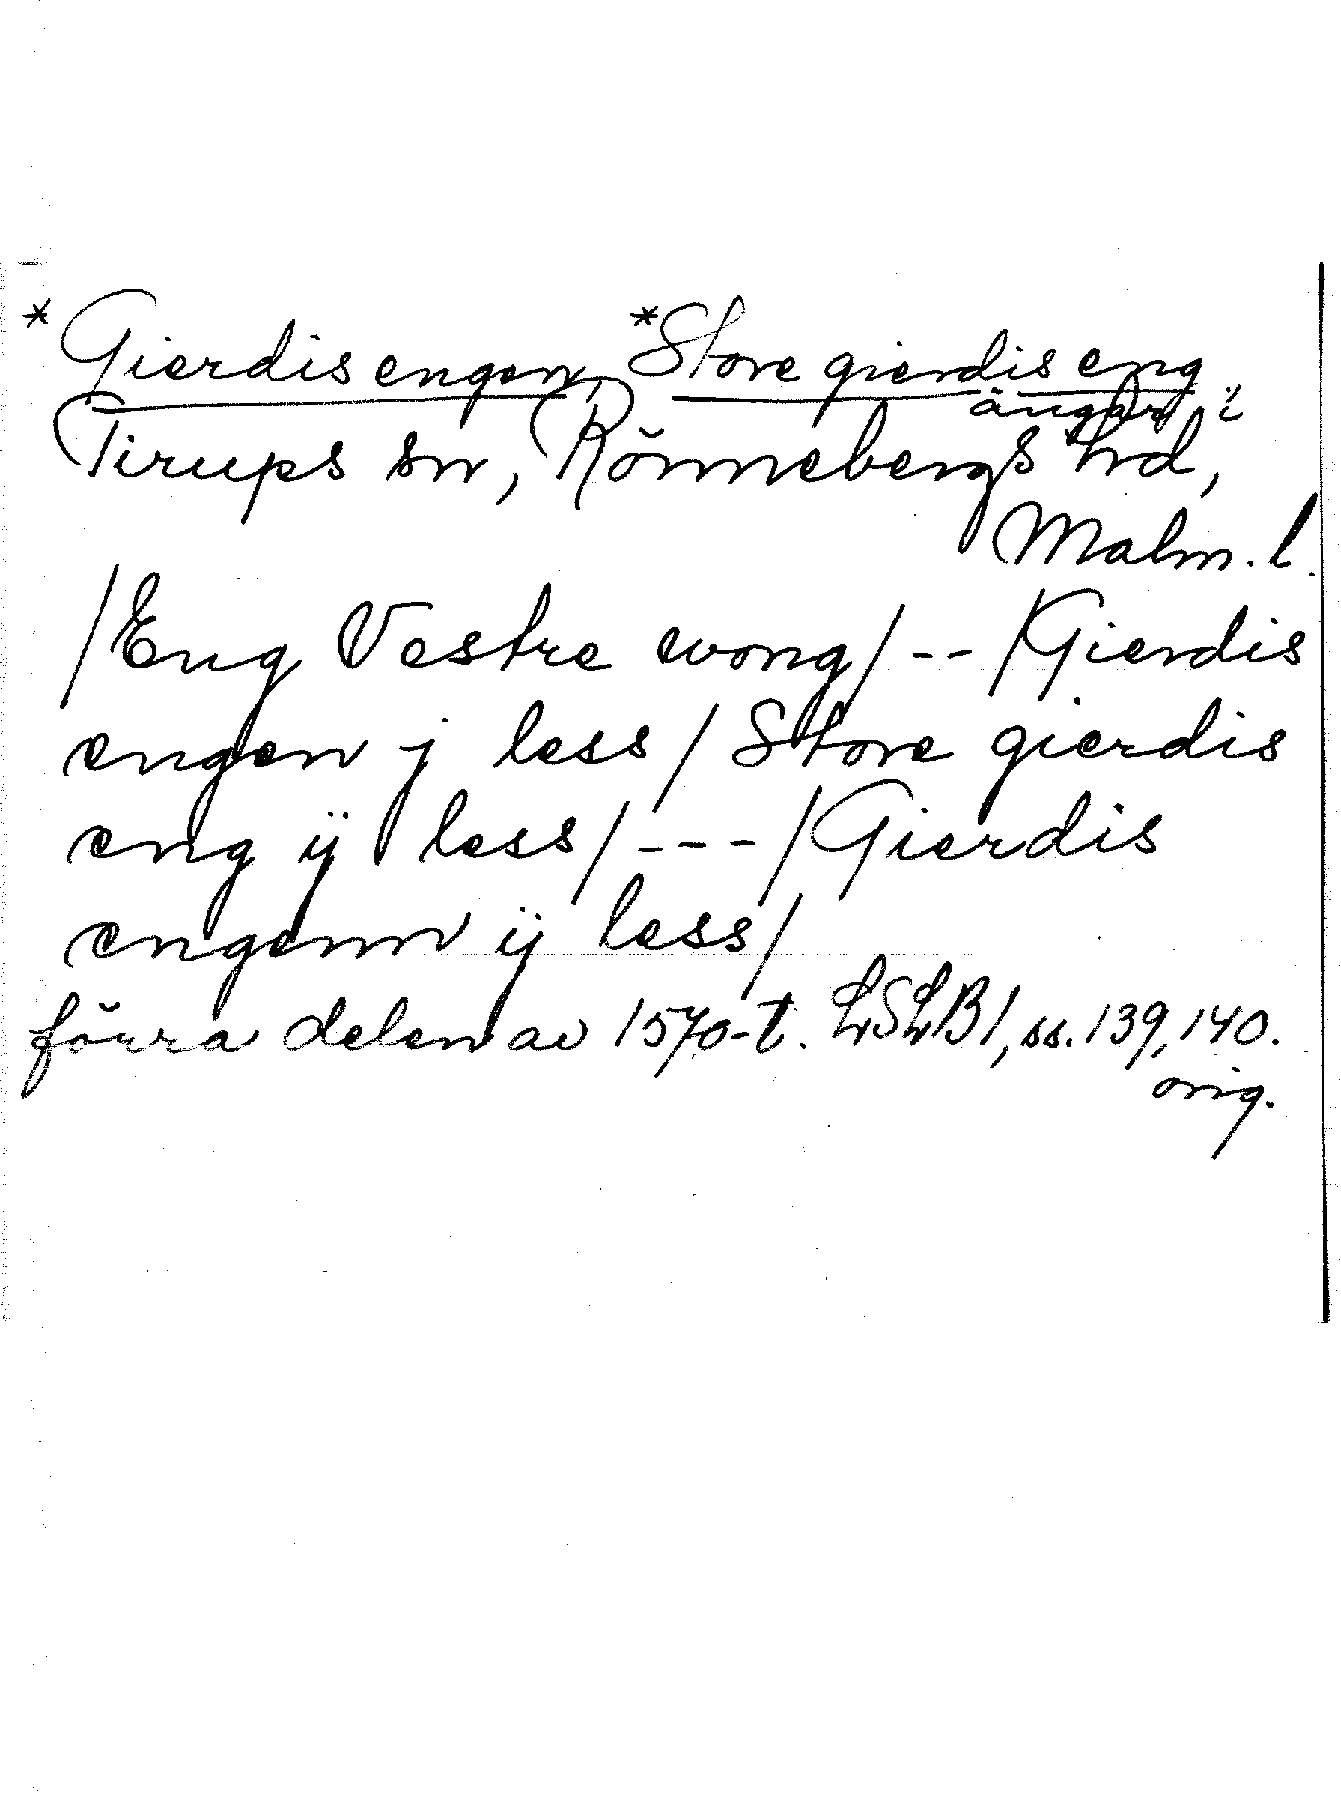 *Gierdis engen, *Store gierdis eng
ängar i
Tirups sn, Rönnebergs hd,
Malm. l.
/Eng Vestre wong/ -- /Gierdis
engen j less/Store gierdis
eng ij less/ --- /Gierdis
engenn ij less/
förra delen av 1570-t. LSLB1, ss. 139, 140.
orig.